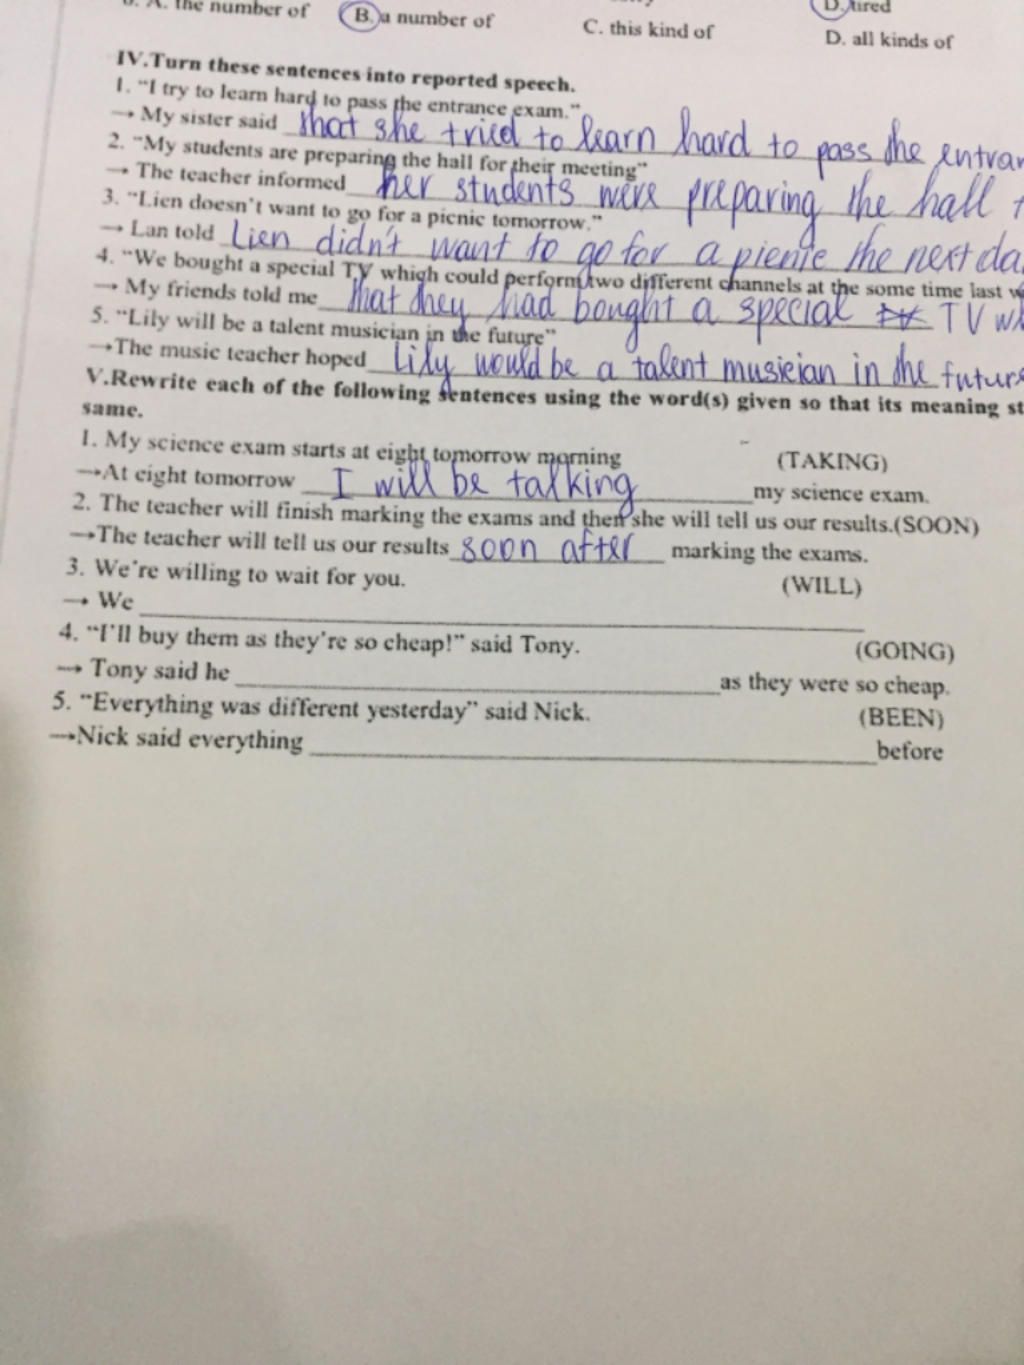 A. the number of B. a number of C. this kind of D. all kinds of
D. tired
IV.Turn these sentences into reported speech.
1. "I try to learn hard to pass the entrance exam."
→ My sister said that she tried to learn hard to pass the
2. "My students are preparing the hall for their meeting"
→ The teacher informed her students were preparing the hall
3. "Lien doesn't want to go for a picnic tomorrow."
→ Lan told Lien didn't want to go for a picnic the next
4. "We bought a special TV which could perform two different channels at the some time last
→ My friends told me that they had bought a special TV
5. "Lily will be a talent musician in the future"
→The music teacher hoped Lily would be a talent musician in the future
V.Rewrite each of the following sentences using the word(s) given so that its meaning
same.
1. My science exam starts at eight tomorrow morning (TAKING)
→At eight tomorrow I will be talking my science exam.
2. The teacher will finish marking the exams and then she will tell us our results.(SOON)
→The teacher will tell us our results soon after marking the exams.
3. We're willing to wait for you. (WILL)
→ We
4. "I'll buy them as they're so cheap!" said Tony. (GOING)
→ Tony said he as they were so cheap.
5. "Everything was different yesterday" said Nick. (BEEN)
→Nick said everything before